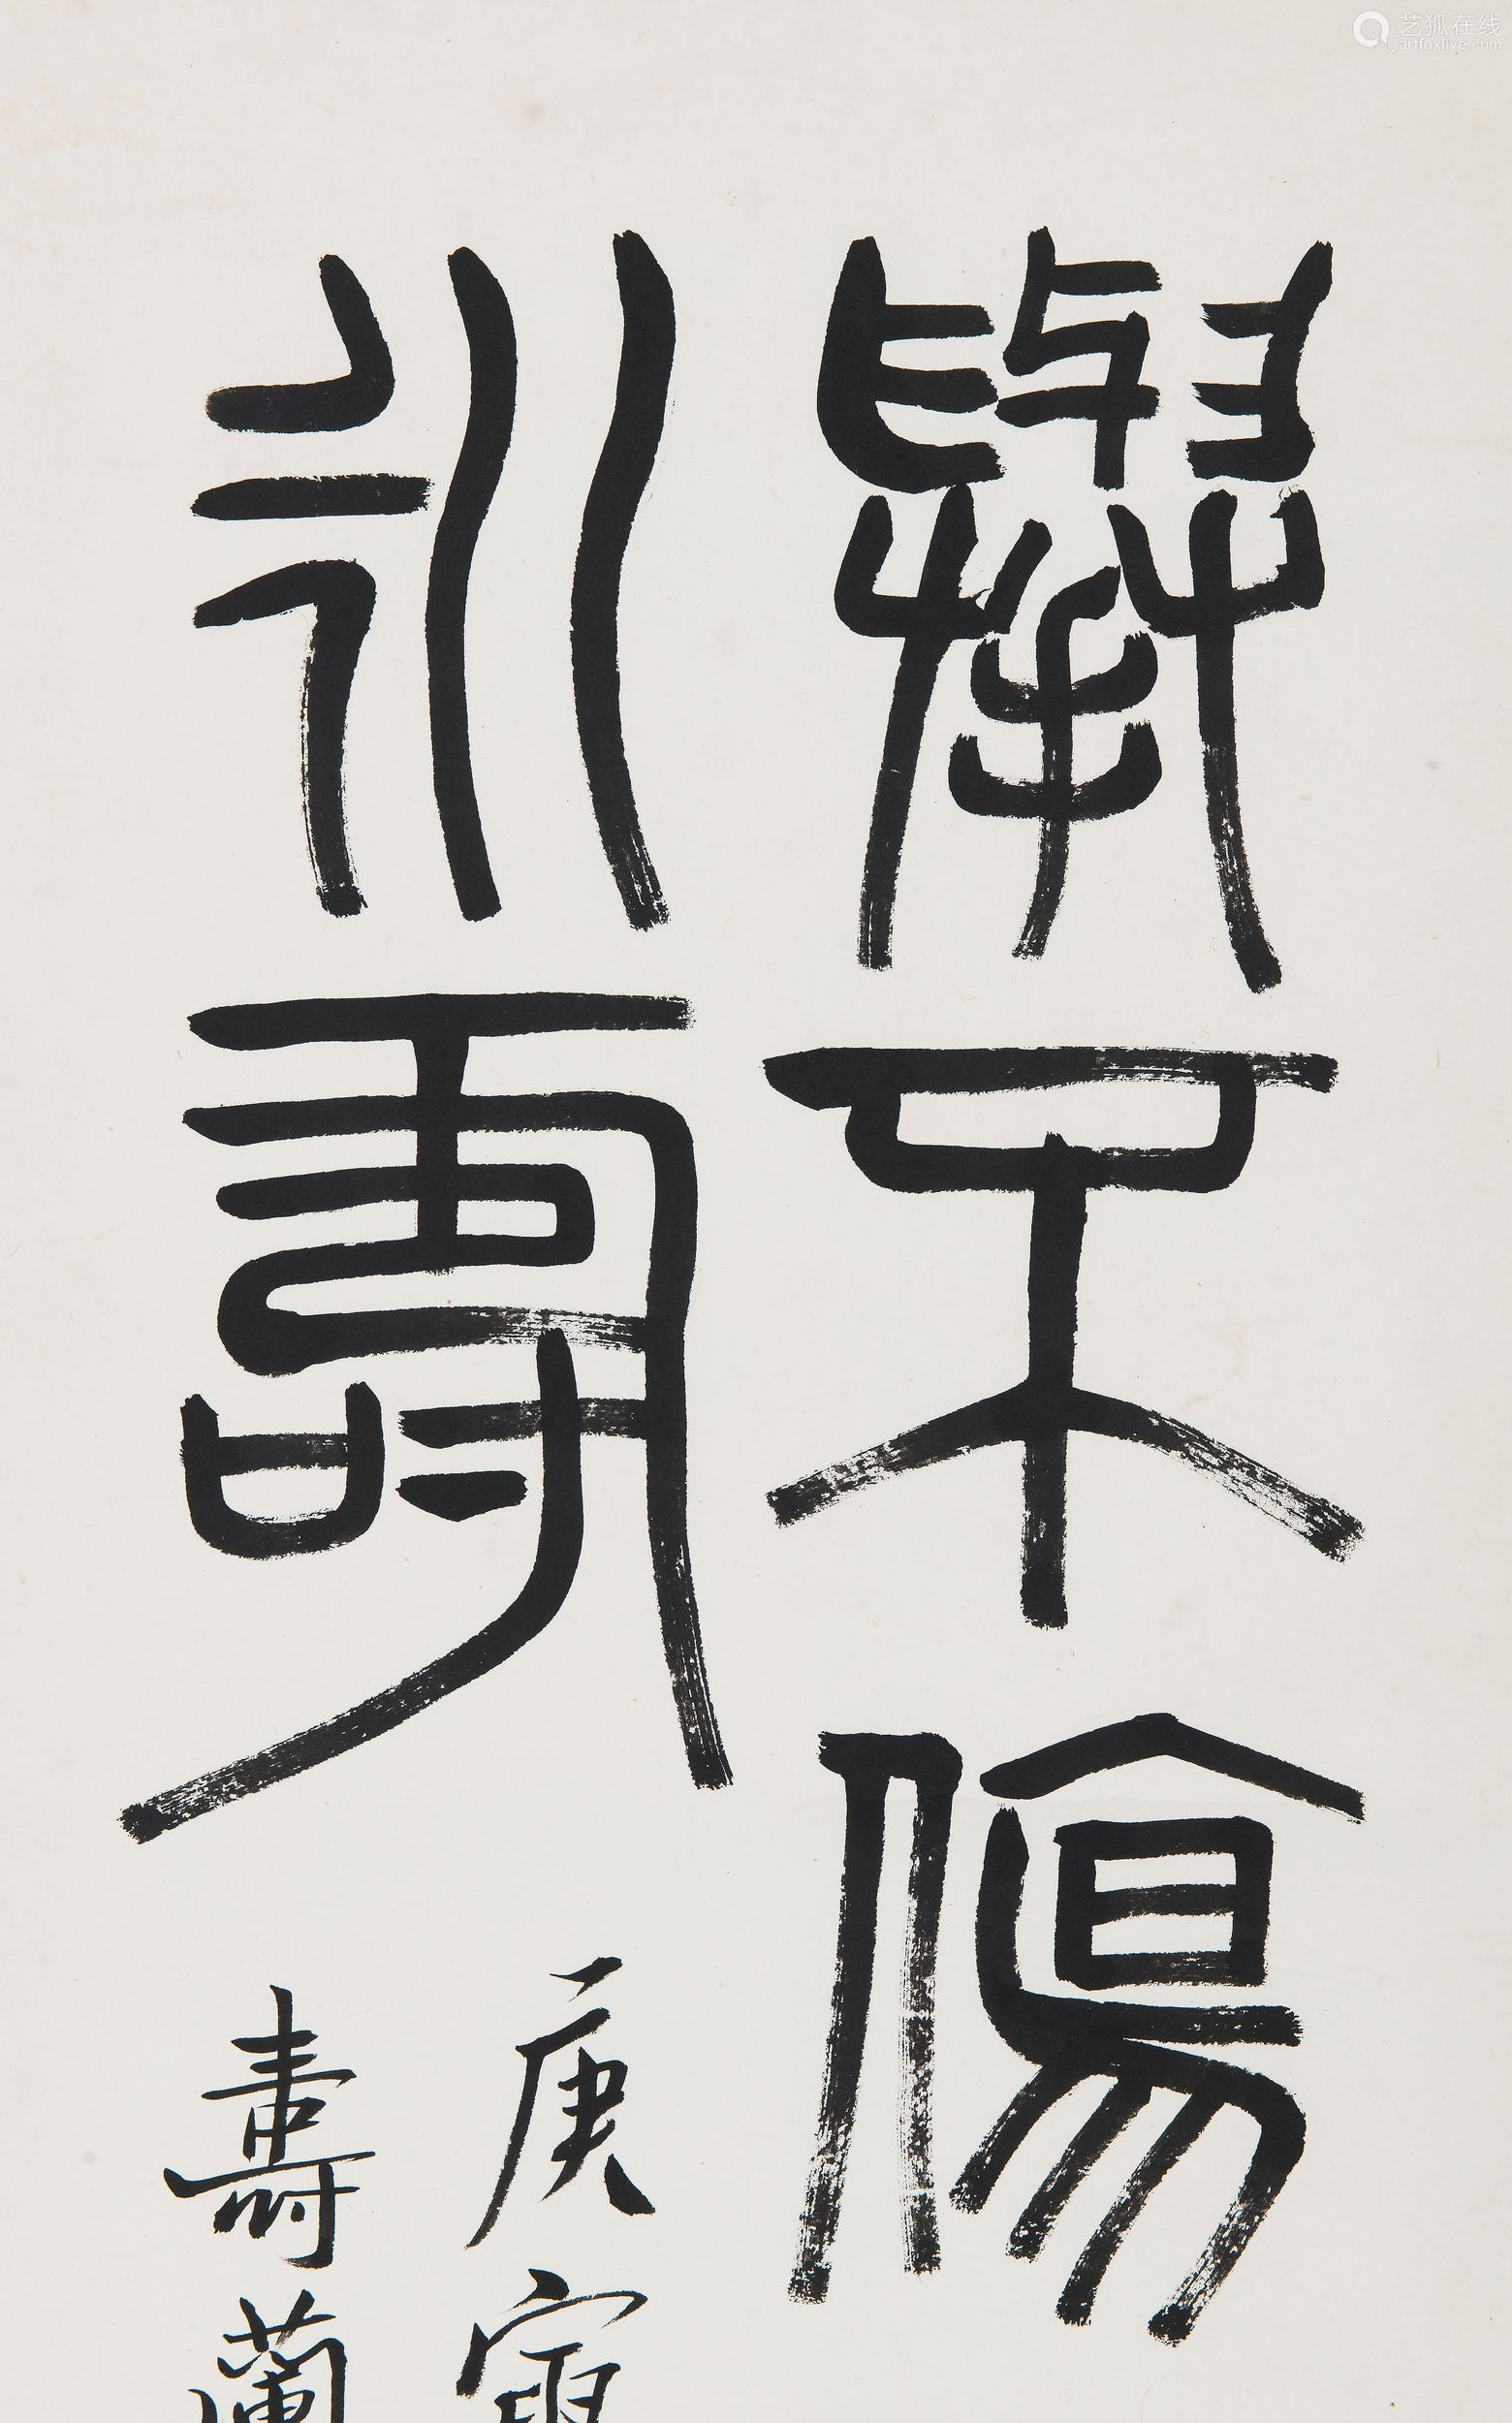 舉不傷
永壽
庚寅
壽蘭
艺狐在线
artfoxlive.com